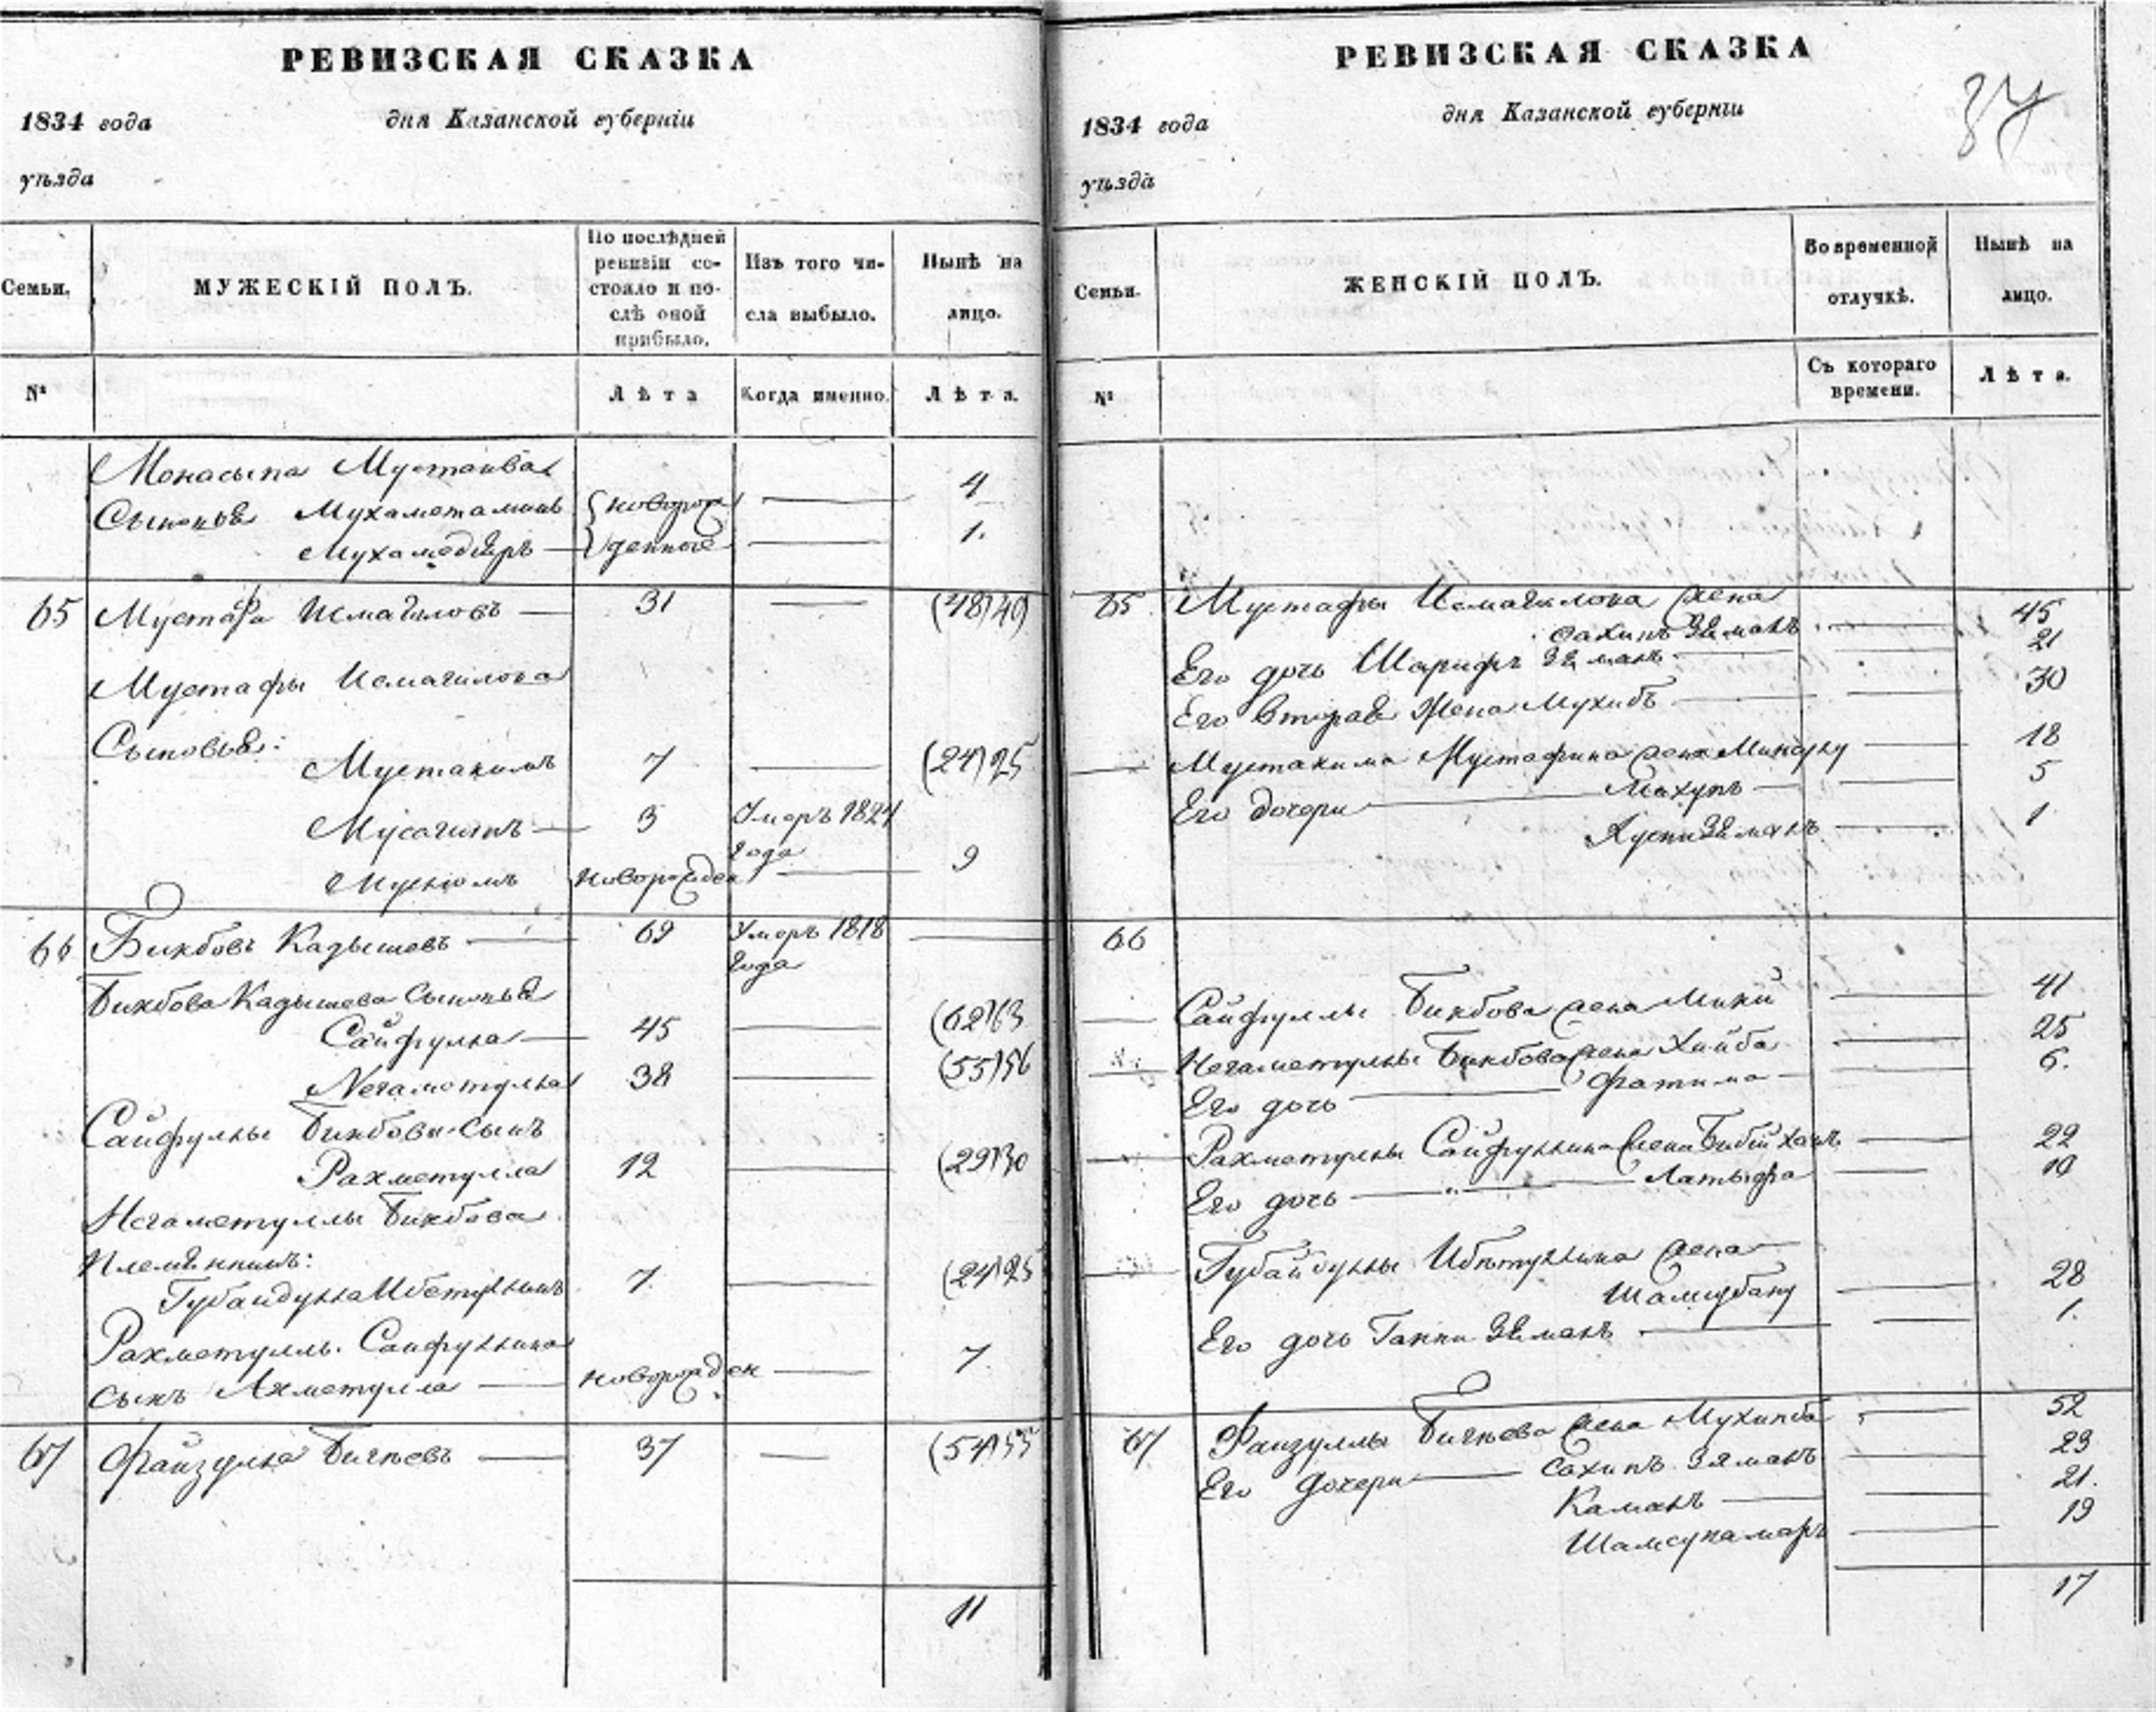 РЕВИЗСКАЯ СКАЗКА
1834 года дня Казанской губерніи
уѣзда
Семьи.
МУЖЕСКІЙ ПОЛЪ.
По послѣдней ревизіи со-
стояло и по-
слѣ оной
прибыло.
Изъ того чи-
сла выбыло.
Нынѣ на
лицо.
№
Лѣта
Когда именно.
Лѣта.
Монасыпа Мустаива
Сыновья Мухаметаминъ новорож — 4
Мухамедіяръ — денные — 1.
65 Мустафа Исмагиловъ — 31 — (48)49
Мустафы Исмагилова
Сыновья:
Мустакимъ 7 — (24)25
Мусагитъ — 3 Умеръ 1824
года
новорожден — 9
66 Бикбовъ Кадышевъ — 69 Умеръ 1818 —
года
Бикбова Кадышева Сыновья
Сайфулла — 45 — (62)63
Негаметулла 38 — (55)56
Сайфуллы Бикбова Сынъ
Рахметулла 12 — (29)30
Негаметуллы Бикбова
Племянникъ:
Губайдулла 7. — (24)25
Рахметуллы Сайфуллина
сынъ Ахметулла — новорожден — 7
67 Файзулла Бичѣевъ — 37 — (54)55
11
РЕВИЗСКАЯ СКАЗКА
37
1834 года дня Казанской губерніи
уѣзда
Семьи.
ЖЕНСКІЙ ПОЛЪ.
Во временной
отлучкѣ.
Нынѣ на
лицо.
№
Съ котораго
времени.
Лѣта.
65 Мустафы Исмагилова жена
Сахипъ Зяманъ — 45
Его дочь Шарифъ Зяманъ — 21
Его вторая жена Мухибъ — 30
Мустакима Мустафина жена — 18
Его дочери — Махупъ — 5
Хусни Зяманъ — 1
66
Сайфуллы Бикбова жена — 41
Негаметуллы Бикбова жена Хайба — 25
Его дочь — Фатима — 6.
Рахметуллы Сайфуллина жена — 22
Его дочь — Латыфа — 10
Губайдуллы жена —
Шамсубану — 28
Его дочь Зяманъ — 1.
67 Файзуллы Бичѣева жена — 52
Его дочери — Сахипъ Зяманъ — 23
Каманъ — 21.
Шамсукамаръ — 19
17